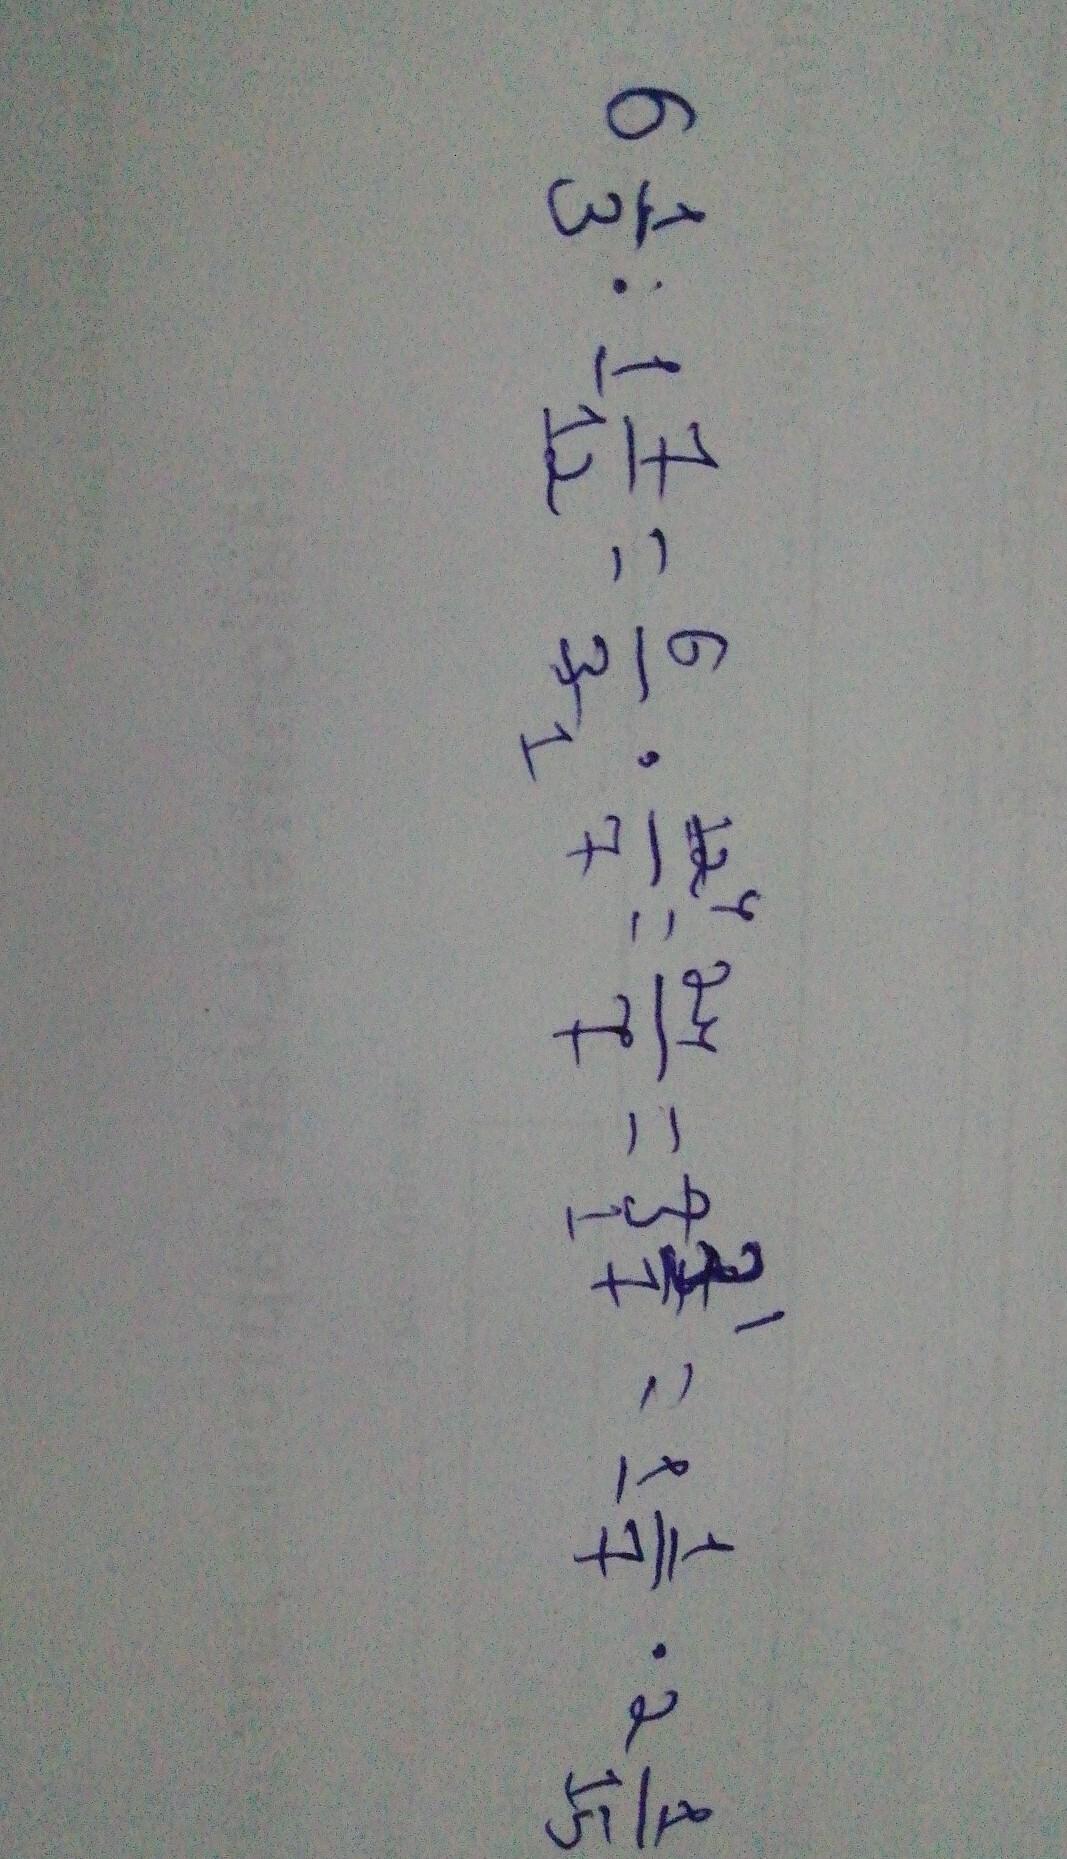 6 1/3 : 1 7/12 = 6/3 · 12/7 = 24/7 = 3/7 = 1 1/7 · 2 1/15